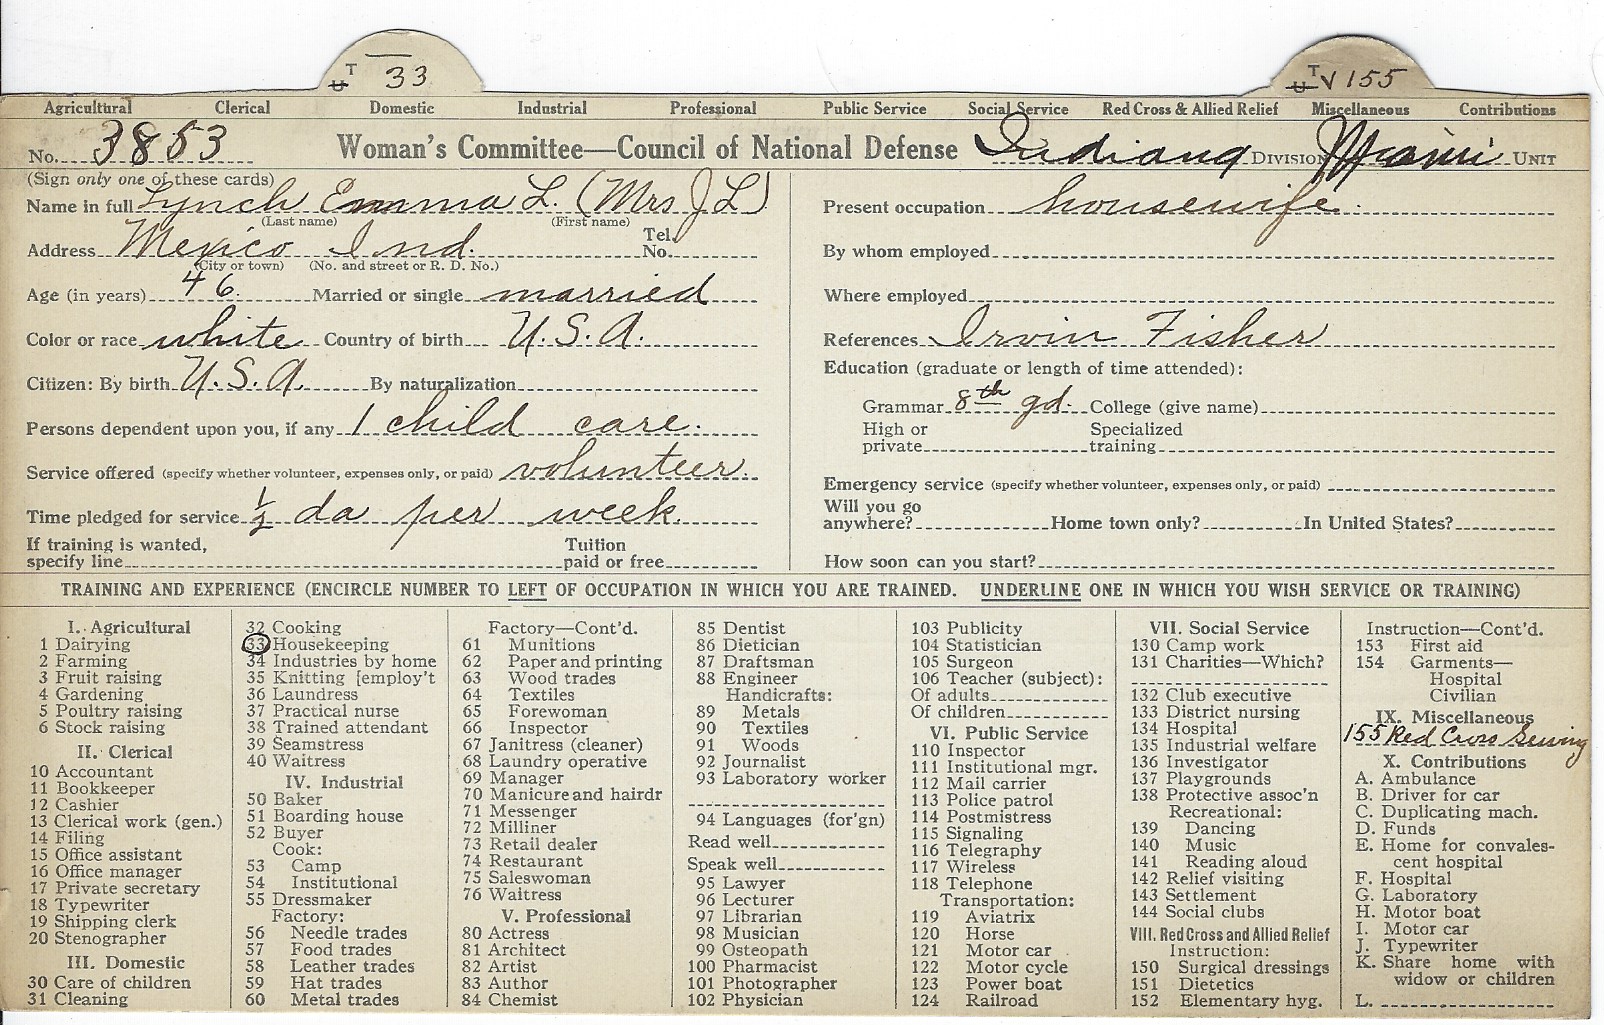 T 33
T V 155
Agricultural Clerical Domestic Industrial Professional Public Service Social Service Red Cross & Allied Relief Miscellaneous Contributions
No. 3853 Woman's Committee—Council of National Defense Indiana Division Miami Unit
(Sign only one of these cards)
Name in full Lynch Emma L. (Mrs J L)
(Last name) (First name)
Address Mexico Ind. Tel. No.
(City or town) (No. and street or R. D. No.)
Age (in years) 46. Married or single married
Color or race white Country of birth U.S.A.
Citizen: By birth U.S.A. By naturalization
Persons dependent upon you, if any 1 child care.
Service offered (specify whether volunteer, expenses only, or paid) volunteer.
Time pledged for service 1/2 da per week.
If training is wanted, specify line Tuition paid or free
Present occupation housewife.
By whom employed
Where employed
References Irvin Fisher
Education (graduate or length of time attended):
Grammar 8th gd. College (give name)
High or private Specialized training
Emergency service (specify whether volunteer, expenses only, or paid)
Will you go anywhere? Home town only? In United States?
How soon can you start?
TRAINING AND EXPERIENCE (ENCIRCLE NUMBER TO LEFT OF OCCUPATION IN WHICH YOU ARE TRAINED. UNDERLINE ONE IN WHICH YOU WISH SERVICE OR TRAINING)
I. Agricultural
1 Dairying
2 Farming
3 Fruit raising
4 Gardening
5 Poultry raising
6 Stock raising
II. Clerical
10 Accountant
11 Bookkeeper
12 Cashier
13 Clerical work (gen.)
14 Filing
15 Office assistant
16 Office manager
17 Private secretary
18 Typewriter
19 Shipping clerk
20 Stenographer
III. Domestic
30 Care of children
31 Cleaning
32 Cooking
33 Housekeeping
34 Industries by home
35 Knitting [employ't
36 Laundress
37 Practical nurse
38 Trained attendant
39 Seamstress
40 Waitress
IV. Industrial
50 Baker
51 Boarding house
52 Buyer
Cook:
53 Camp
54 Institutional
55 Dressmaker
Factory:
56 Needle trades
57 Food trades
58 Leather trades
59 Hat trades
60 Metal trades
Factory—Cont'd.
61 Munitions
62 Paper and printing
63 Wood trades
64 Textiles
65 Forewoman
66 Inspector
67 Janitress (cleaner)
68 Laundry operative
69 Manager
70 Manicure and hairdr
71 Messenger
72 Milliner
73 Retail dealer
74 Restaurant
75 Saleswoman
76 Waitress
V. Professional
80 Actress
81 Architect
82 Artist
83 Author
84 Chemist
85 Dentist
86 Dietician
87 Draftsman
88 Engineer
Handicrafts:
89 Metals
90 Textiles
91 Woods
92 Journalist
93 Laboratory worker
94 Languages (for'gn)
Read well
Speak well
95 Lawyer
96 Lecturer
97 Librarian
98 Musician
99 Osteopath
100 Pharmacist
101 Photographer
102 Physician
103 Publicity
104 Statistician
105 Surgeon
106 Teacher (subject):
Of adults
Of children
VI. Public Service
110 Inspector
111 Institutional mgr.
112 Mail carrier
113 Police patrol
114 Postmistress
115 Signaling
116 Telegraphy
117 Wireless
118 Telephone
Transportation:
119 Aviatrix
120 Horse
121 Motor car
122 Motor cycle
123 Power boat
124 Railroad
VII. Social Service
130 Camp work
131 Charities—Which?
132 Club executive
133 District nursing
134 Hospital
135 Industrial welfare
136 Investigator
137 Playgrounds
138 Protective assoc'n
Recreational:
139 Dancing
140 Music
141 Reading aloud
142 Relief visiting
143 Settlement
144 Social clubs
VIII. Red Cross and Allied Relief
Instruction:
150 Surgical dressings
151 Dietetics
152 Elementary hyg.
Instruction—Cont'd.
153 First aid
154 Garments—
Hospital
Civilian
IX. Miscellaneous
155 Red Cross Sewing
X. Contributions
A. Ambulance
B. Driver for car
C. Duplicating mach.
D. Funds
E. Home for convales-
cent hospital
F. Hospital
G. Laboratory
H. Motor boat
I. Motor car
J. Typewriter
K. Share home with
widow or children
L.